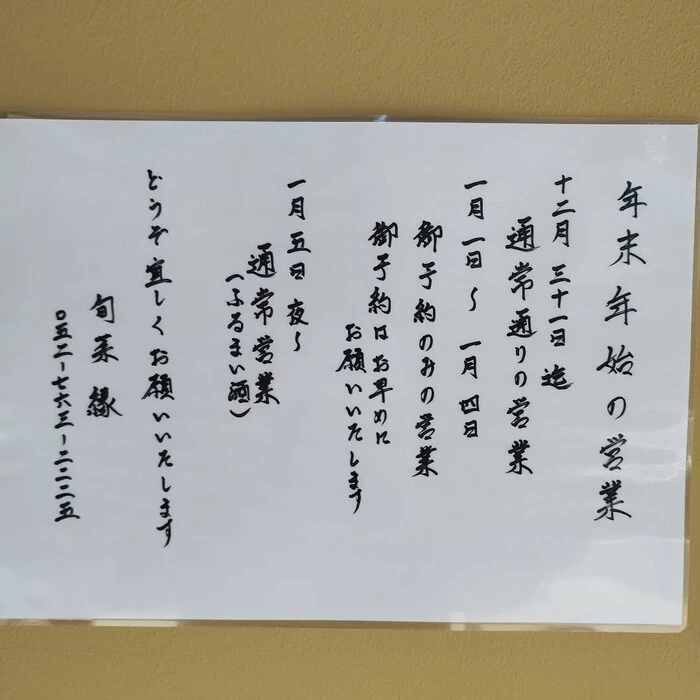 年末年始の営業
十二月 三十一日 迄
通常通りの営業
一月 一日〜 一月 四日
御予約のみの営業
御予約はお早めに
お願いいたします
一月 五日 夜〜
通常営業
(ふるまい酒)
どうぞ宜しくお願いいたします
旬菜 縁
〇五二-七六三-二二二五